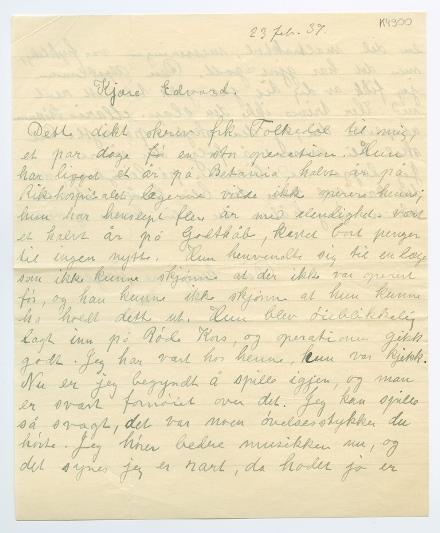 K4900
23 feb. 37.
Kjære Edvard.
Dette dikt skrev frk. Folkedal til mig
et par dage før en stor operation. Hun
har ligget et år på Betania, halvt år på
Rikshospitalet, lægerne vilde ikke operere henne,
hun har henslept flere år med elendighet. Vært
et halvt år på Godthåb, kastet bort penger
til ingen nytte. Hun henvendte sig til en læge
som ikke kunne skjønne at der ikke var operert
før, og han kunne ikke skjønne at hun kunne
ha holdt dette ut. Hun blev øieblikkelig
lagt inn på Røde Kors, og operationen gikk
godt. Jeg har vært hos henne, hun var kjekk.
Nu er jeg begyndt å spille igjen, og man
er svært fornøiet over det. Jeg kan spille
så svagt, det var noen øvelsesstykker du
hørte. Jeg hører bedre musikken nu, og
det synes jeg er rart, da hodet jo er